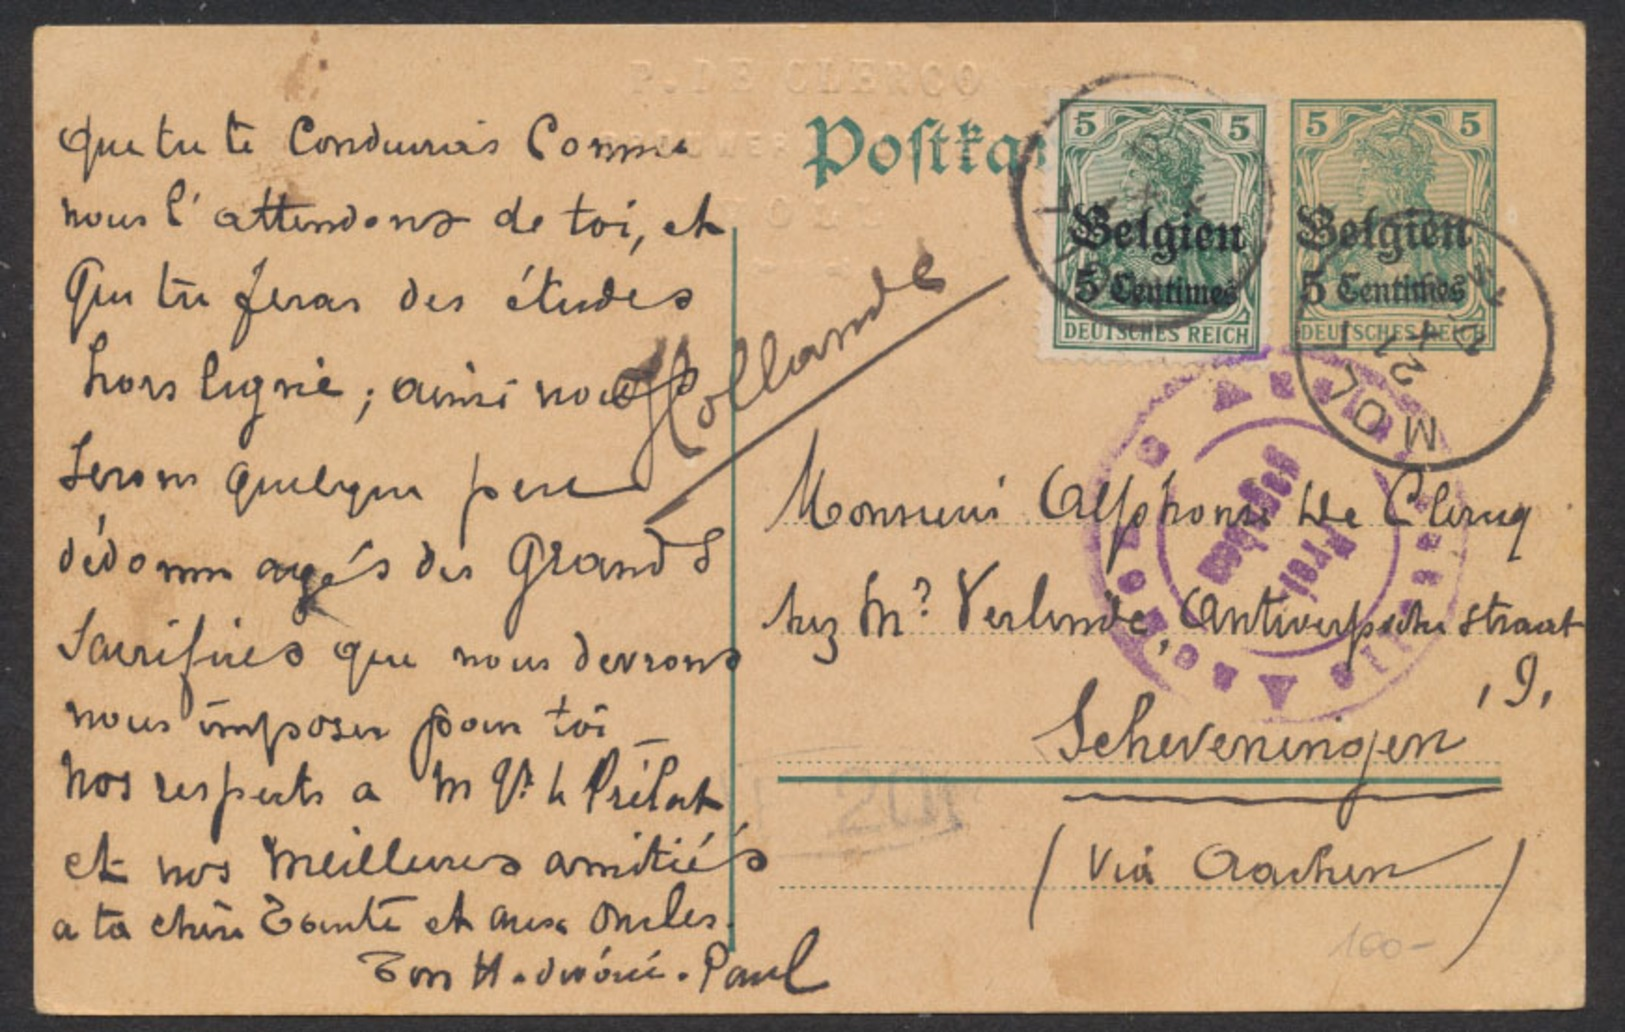 P. DE CLERCQ
Postkar
5 5
Belgien
5 Centimes
DEUTSCHES REICH
5 5
Belgien
5 Centimes
DEUTSCHES REICH
MOL
Hollande
que tu te conduirais comme
nous l'attendons de toi, et
que tu feras des études
hors ligne ; ainsi nous
serons quelque peu
dédommagés des grands
sacrifices que nous devrons
nous imposer pour toi
Nos respects a Mgr le Prélat
et nos meilleures amitiés
a ta chère Tante et aux oncles.
Ton dévoué. Paul
Monsieur Alphonse De Clercq
chez Mr Verlinde, Antwerpsche straat
, 9,
Scheveningen
(Via Aachen)
Auslandstelle Aachen
Freigegeben
201
100-